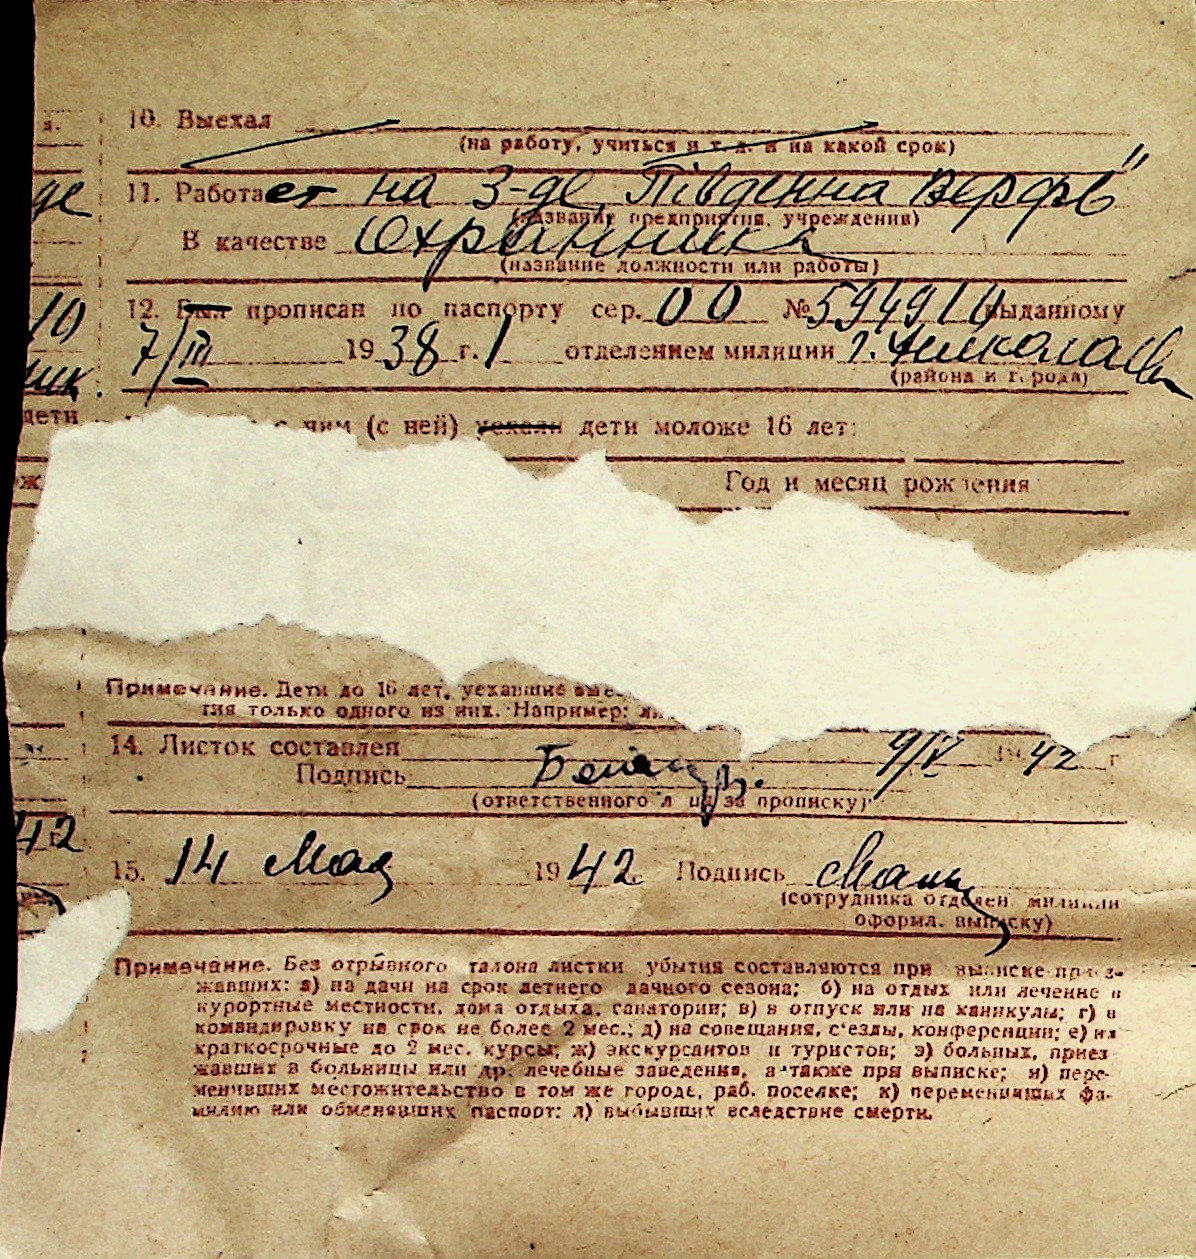 10. Выехал
(на работу, учиться и т. д. и на какой срок)
11. Работает на З-де „Південна Верфь"
(название предприятия, учреждения)
В качестве Охранника
(название должности или работы)
12. Был прописан по паспорту сер. 00 № 594910 выданному
7/III 1938 г. 1 отделением милиции г. Николаев
(района и города)
с ним (с ней) уехали дети моложе 16 лет:
дети
Год и месяц рождения
Примечание. Дети до 16 лет, уехавшие вме
тия только одного из них. Например:
14. Листок составлен 9/V 1942 г
Подпись
(ответственного лица за прописку)
42
15. 14 Мая 1942 Подпись
(сотрудника отделен милиции
оформл. выписку)
Примечание. Без отрывного талона листки убытия составляются при выписке приез-
жавших: а) на дачи на срок летнего дачного сезона; б) на отдых или лечение в
курортные местности, дома отдыха, санатории; в) в отпуск или на каникулы; г) в
командировку на срок не более 2 мес.; д) на совещания, с'езды, конференции; е) на
краткосрочные до 2 мес. курсы; ж) экскурсантов и туристов; з) больных, приез
жавших в больницы или др. лечебные заведения, а также при выписке; и) пере-
менивших местожительство в том же городе, раб. поселке; к) переменивших фа-
милию или обменявших паспорт; л) выбывших вследствие смерти.